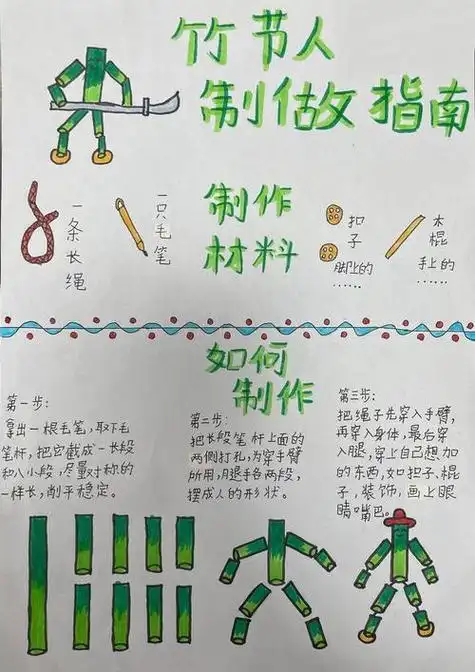 竹节人
制做指南
一条长绳
一只毛笔
制作
材料
扣子
脚上的
……
木棍
手上的
……
如何
制作
第一步:
拿出一根毛笔,取下毛
笔杆,把它截成一长段
和八小段,尽量对称的
一样长,削平稳定。
第二步:
把长段笔杆上面的
两侧打孔,为穿手臂
所用,月退手各两段,
摆成人的形状。
第三步:
把绳子先穿入手臂,
再穿入身体,最后穿
入腿,穿上自己想加
的东西,如扣子、棍
子,装饰,画上眼
睛嘴巴。